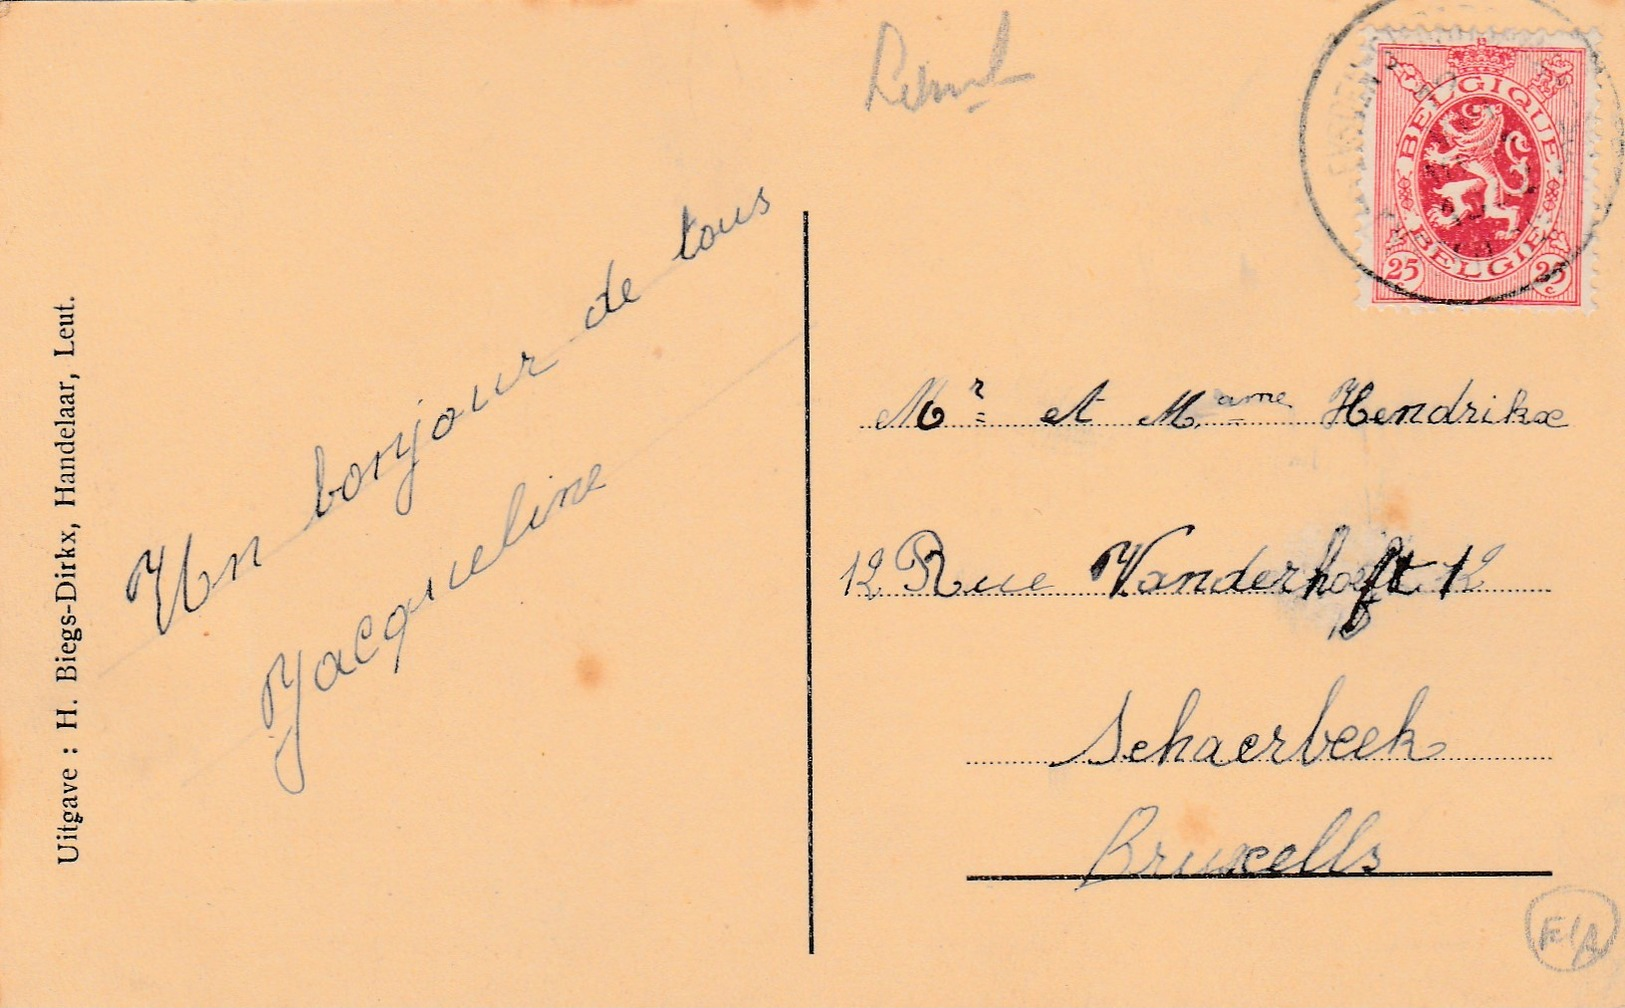 Uitgave : H. Biegs-Dirkx, Handelaar, Leut.
Un bonjour de tous
Jacqueline
BELGIQUE
BELGIE
25 c
25 c
Mr et Mame Hendrikx
12 Rue Vanderhoeft 12
Schaerbeek
Bruxells
E/A